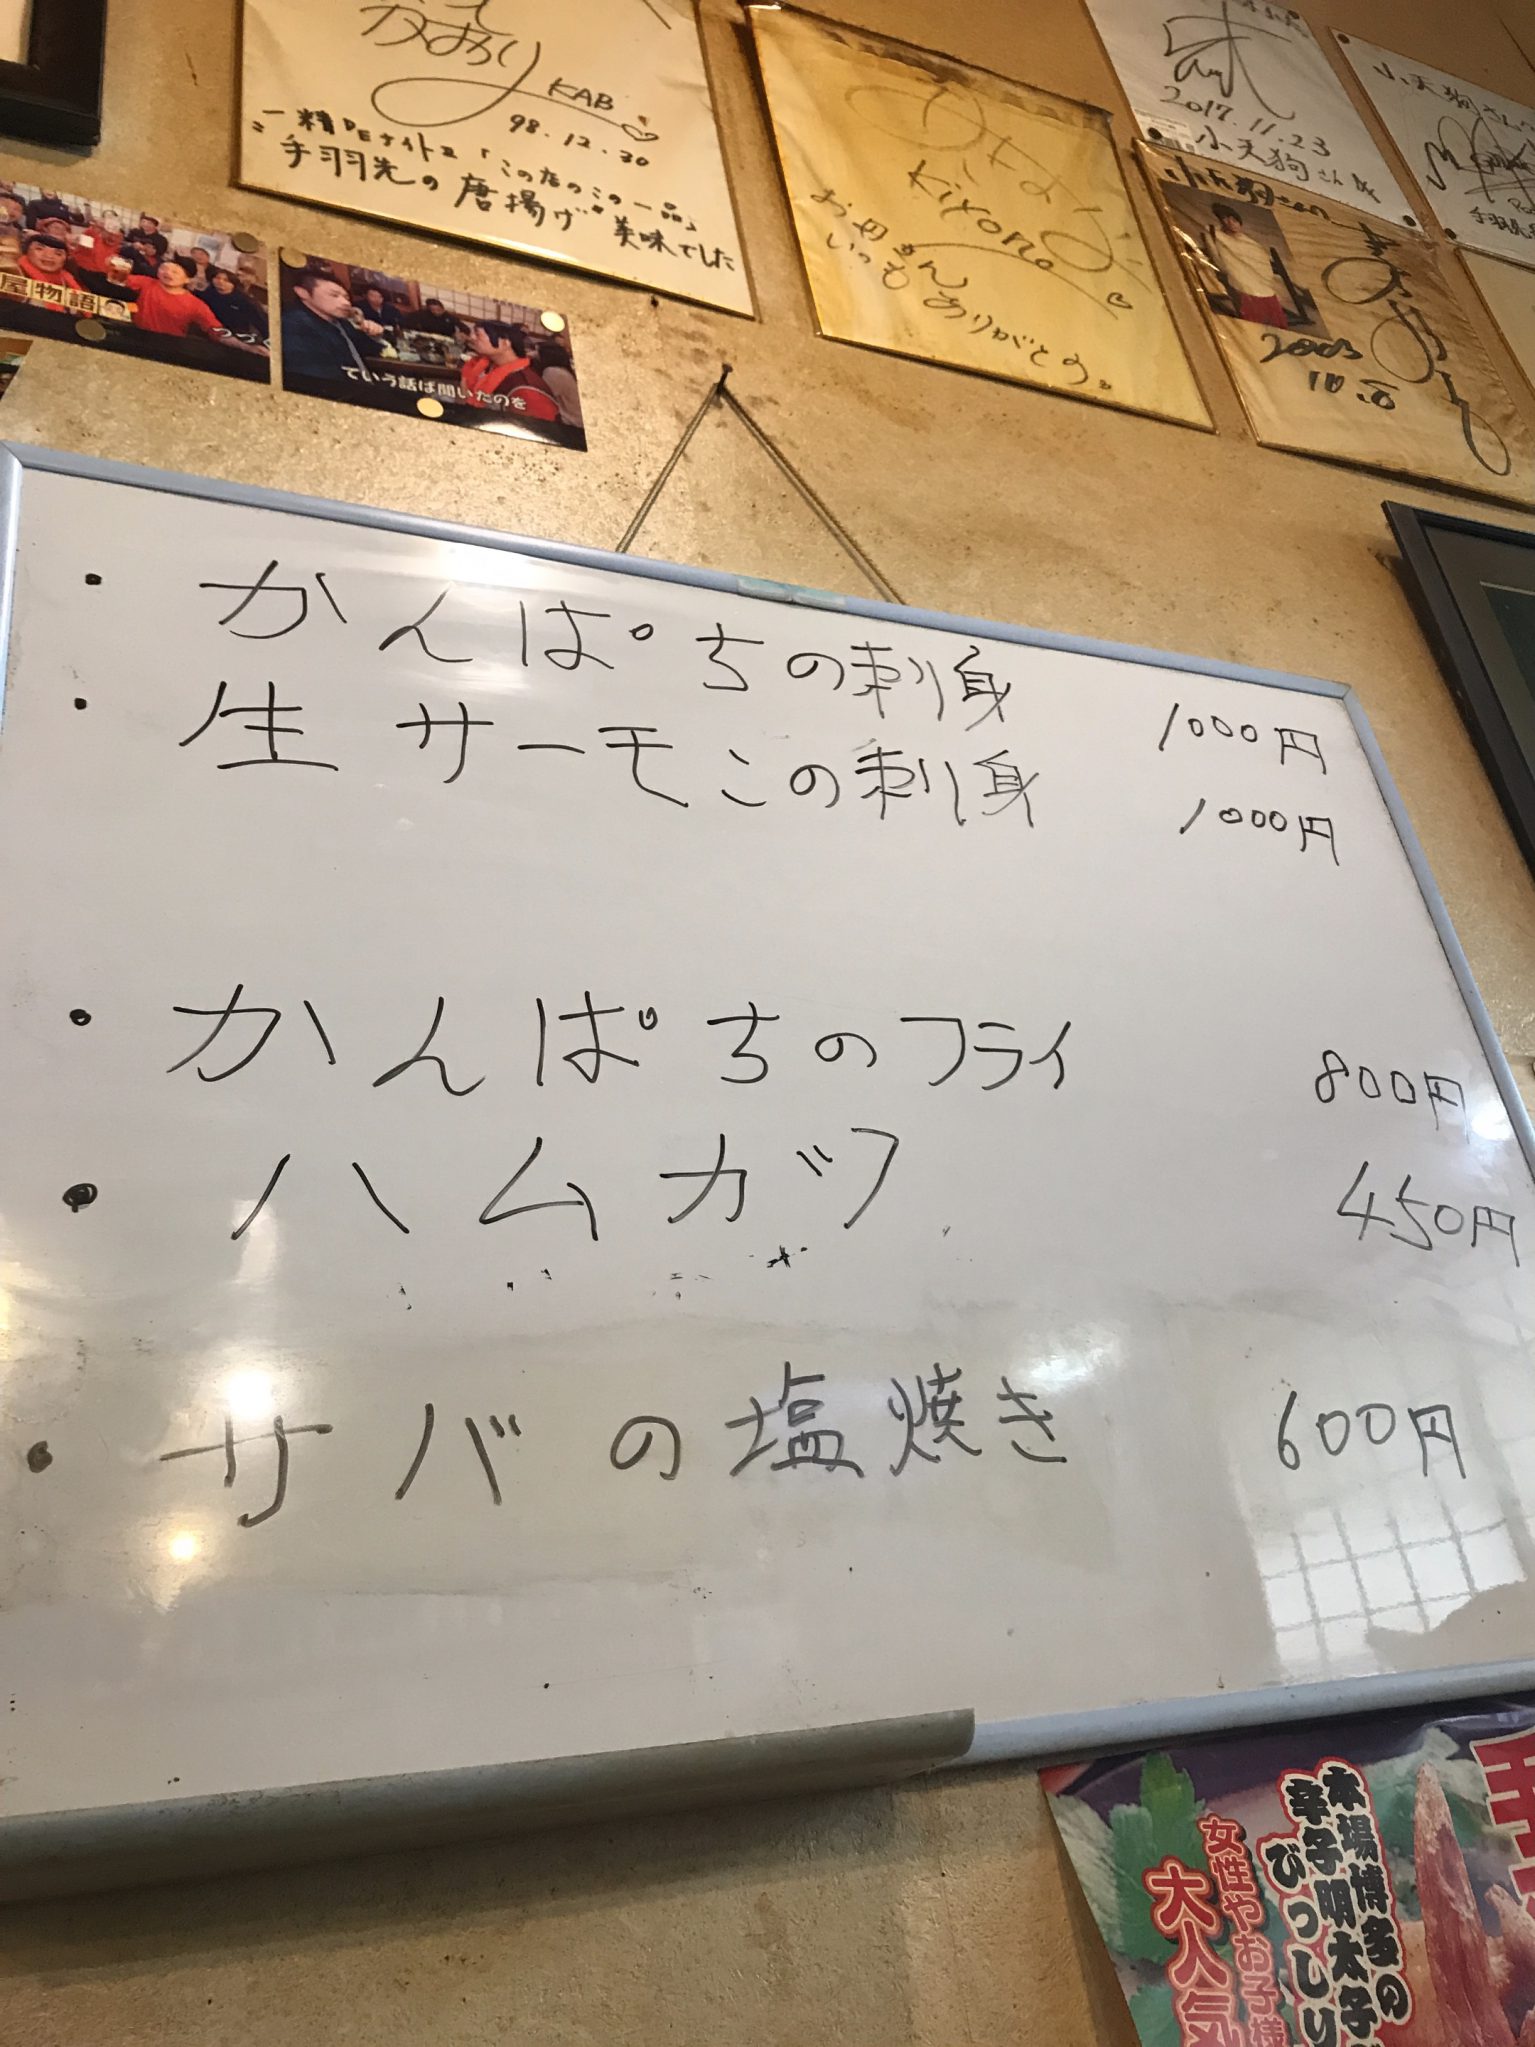 KAB
98.12.30
一精DEナイト立「この店のこの一品」
手羽先の唐揚げ 美味でした
屋物語
つづく
ていう話は聞いたのを
Kiyono
お母さん
いつも
ありがとう。
2017.11.23
小天狗さん江
小天狗さん
小天狗さん
2003
・かんぱちの刺身 1000円
・生サーモンの刺身 1000円
・かんぱちのフライ 800円
・ハムカツ 450円
・サバの塩焼き 600円
本場博多の
辛子明太子
びっしり
女性やお子様
大人気